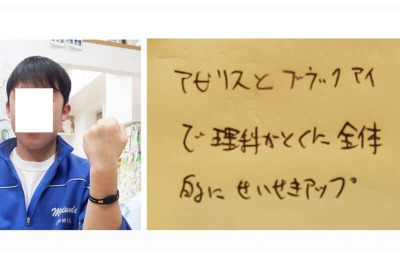 アゼリスと ブラックアイ
で 理科がとくに 全体
的に せいせきアップ